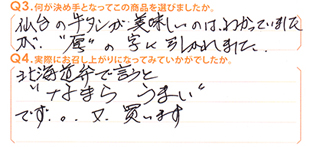 Q3.何が決め手となってこの商品を選びましたか。
仙台の牛タンが美味しいのは、わかっていました
が、"厚"の字に引かれました。
Q4.実際にお召し上がりになってみていかがでしたか。
北海道弁で言うと
"なまら うまい"
です。。又、買います